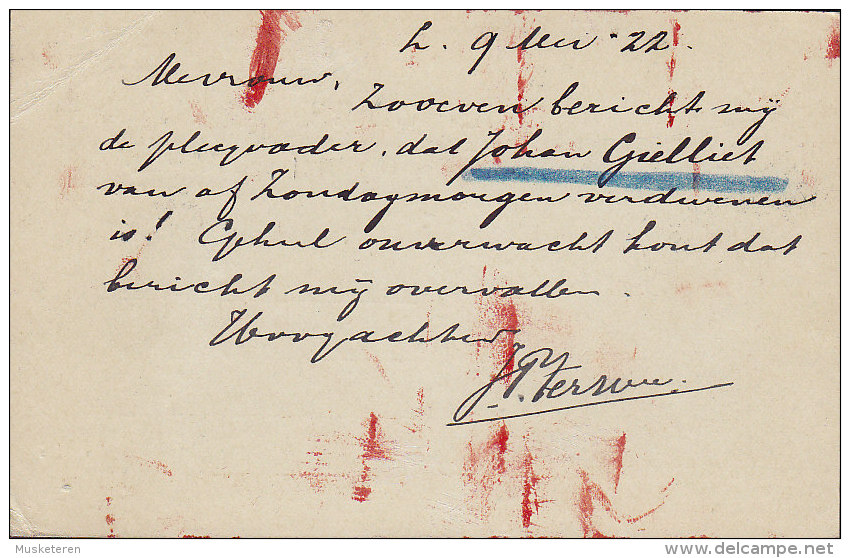 L. 9 Mei '22.
Mevrouw,
Zooeven bericht mij
de pleegvader, dat Johan Gielliet
van af Zondagmorgen verdwenen
is! Geheel onverwacht komt dat
bericht mij overvallen.
Hoogachtend
Musketeren
delcampe.net